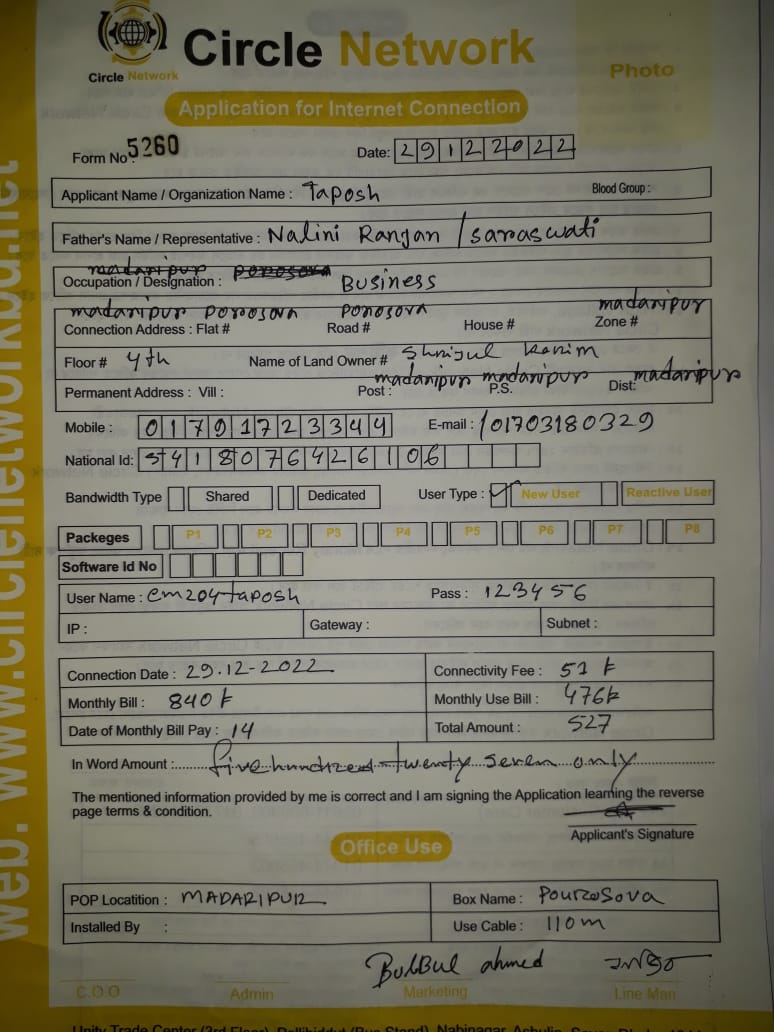 Circle Network
Circle Network
Photo
Application for Internet Connection
Form No: 5260
Date: 29122022
Applicant Name / Organization Name : Taposh
Blood Group :
Father's Name / Representative : Nalini Ranjan / Saraswati
madaripur porosova
Occupation / Designation : Business
madaripur porosova porosova madaripur
Connection Address : Flat # Road # House # Zone #
Floor # 4th Name of Land Owner # Karim
madaripur madaripur madaripur
Permanent Address : Vill : Post : P.S. Dist:
Mobile : 01791723344 E-mail : /01703180329
National Id: 5418076426106
Bandwidth Type Shared Dedicated User Type : New User Reactive User
Packeges P1 P2 P3 P4 P5 P6 P7 P8
Software Id No
User Name : cm204taposh Pass : 123456
IP : Gateway : Subnet :
Connection Date : 29.12-2022 Connectivity Fee : 51 t
Monthly Bill : 840 t Monthly Use Bill : 476t
Date of Monthly Bill Pay : 14 Total Amount : 527
In Word Amount : five hundred twenty seven only
The mentioned information provided by me is correct and I am signing the Application learning the reverse
page terms & condition.
Applicant's Signature
Office Use
POP Locatition : MADARIPUR Box Name : Pourosova
Installed By : Use Cable : 110m
BulBul ahmed
C.O.O Admin Marketing Line Man
web: www.circlenetworkbd.net